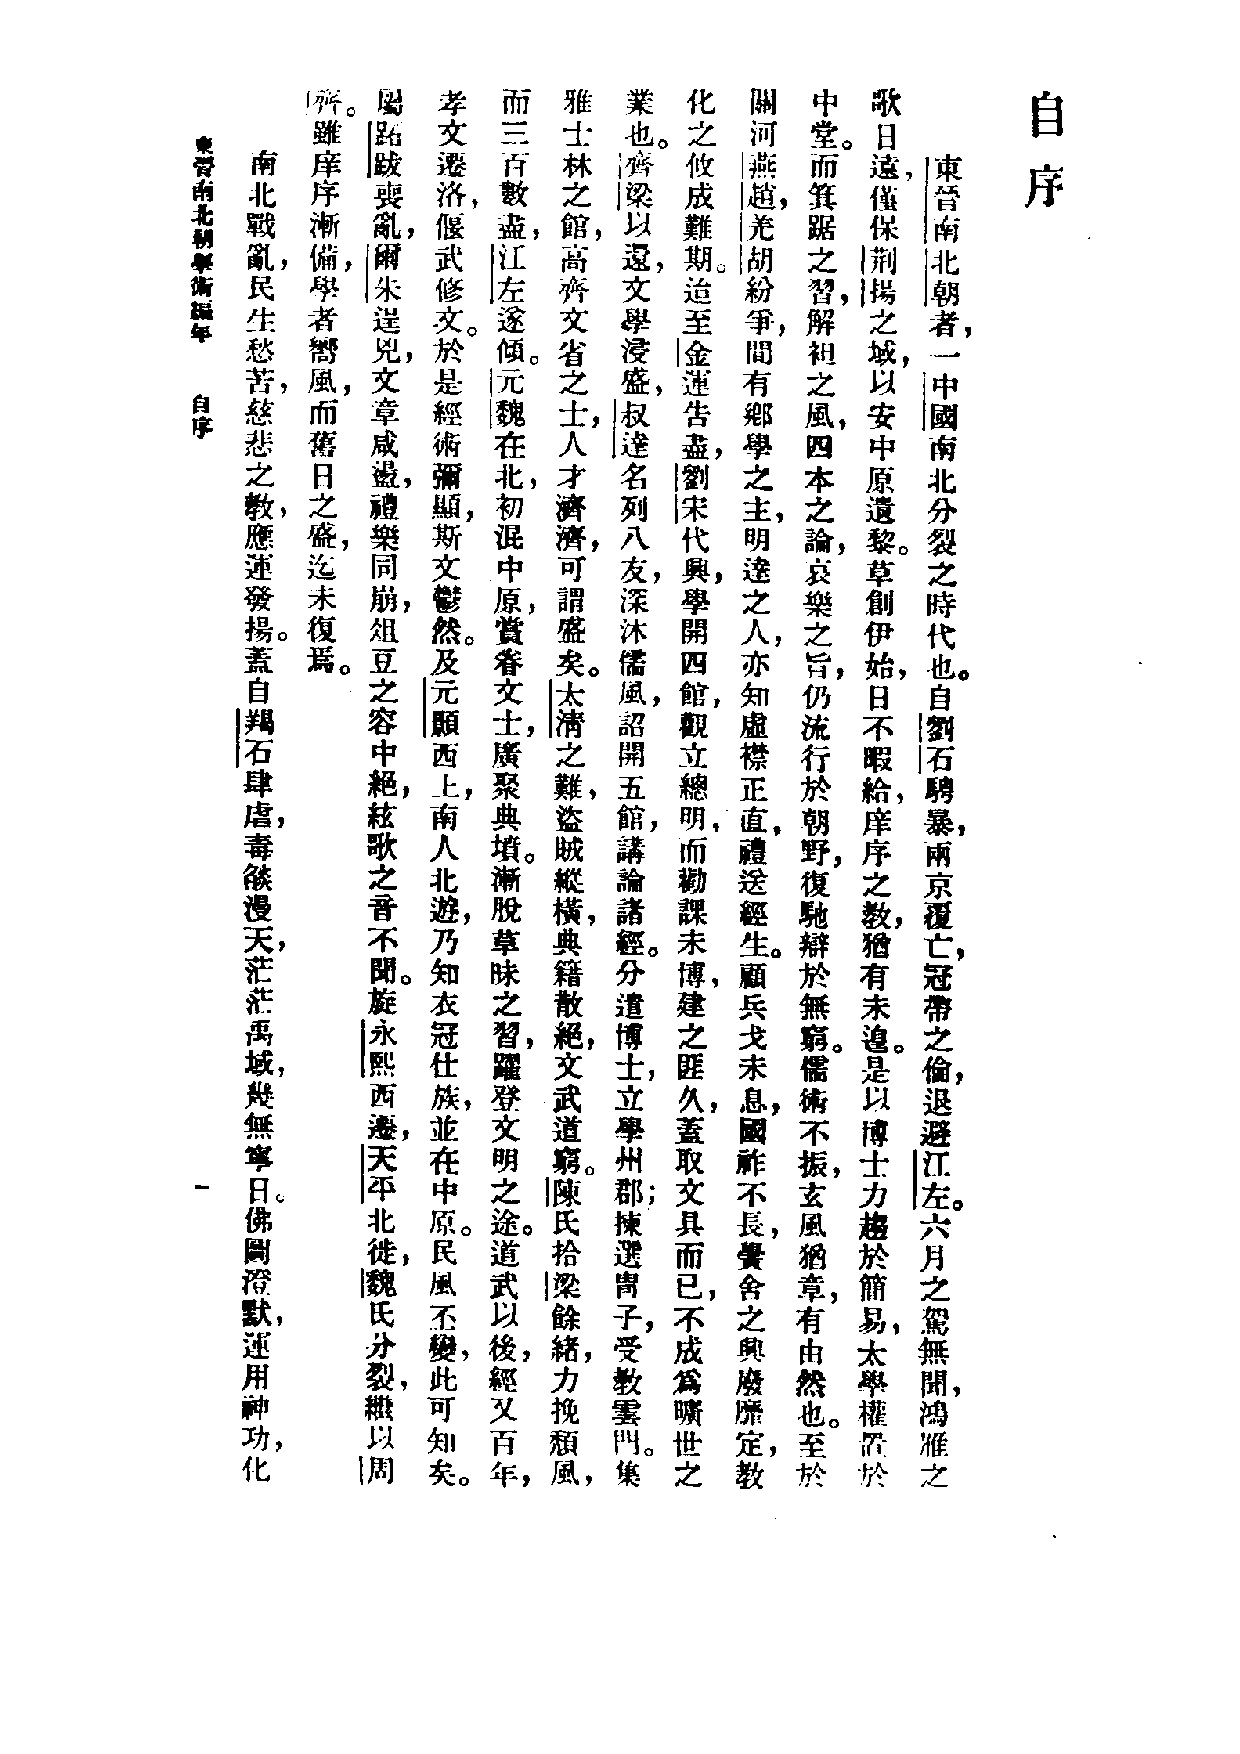 自序
東晉南北朝者，一中國南北分裂之時代也。自劉石騁暴，兩京覆亡，冠帶之倫，退避江左。六月之駕無聞，鴻雁之
歌日遠，僅保荆揚之域，以安中原遺黎。草創伊始，日不暇給，庠序之教，猶有未遑。是以博士力趨於簡易，太學權置於
中堂。而箕踞之習，解袒之風，四本之論，哀樂之旨，仍流行於朝野，復馳辯於無窮。儒術不振，玄風猶章，有由然也。至於
關河燕趙，羌胡紛爭，間有鄉學之主，明達之人，亦知虛襟正直，禮送經生。顧兵戈未息，國祚不長，黌舍之興廢靡定，教
化之攸成難期。迨至金運告盡，劉宋代興，學開四館，觀立總明，而勸課未博，建之匪久，蓋取文具而已，不成爲曠世之
業也。齊梁以還，文學浸盛，叔達名列八友，深沐儒風，詔開五館，講論諸經。分遣博士，立學州郡；揀選冑子，受教雲門。集
雅士林之館，高齊文省之士，人才濟濟，可謂盛矣。太淸之難，盜賊縱橫，典籍散絕，文武道窮。陳氏拾梁餘緒，力挽頹風，
而三百數盡，江左遂傾。元魏在北，初混中原，賞眷文士，廣聚典墳。漸脫草昧之習，躍登文明之途。道武以後，經又百年，
孝文遷洛，偃武修文。於是經術彌顯，斯文鬱然。及元顥西上，南人北遊，乃知衣冠仕族，並在中原。民風丕變，此可知矣。
屬跖跋喪亂，爾朱逞兇，文章咸盪，禮樂同崩，俎豆之容中絕，絃歌之音不聞。旋永熙西遷，天平北徙，魏氏分裂，繼以周
齊。雖庠序漸備，學者嚮風，而舊日之盛，迄未復焉。
南北戰亂，民生愁苦，慈悲之教，應運發揚。蓋自羯石肆虐，毒燄漫天，茫茫禹域，幾無寧日。佛圖澄默，運用神功，化
東晉南北朝學術編年　自序
一